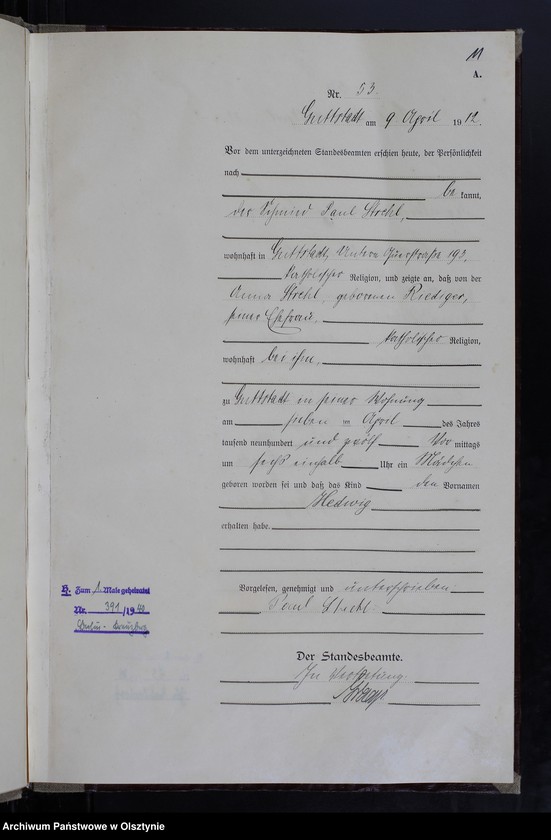 11
A.
Nr. 53.
Guttstadt am 9 April 1912.
Vor dem unterzeichneten Standesbeamten erschien heute, der Persönlichkeit
nach
be kannt,
der Schmied Paul Strehl,
wohnhaft in Guttstadt, Untere Querstraße 193,
katholischer Religion, und zeigte an, daß von der
Anna Strehl, geborenen Riediger,
seiner Ehefrau,
katholischer Religion,
wohnhaft bei ihm,
zu Guttstadt in seiner Wohnung
am sieben ten April des Jahres
tausend neunhundert und zwölf Vor mittags
um sechs einhalb Uhr ein Mädchen
geboren worden sei und daß das Kind den Vornamen
Hedwig
erhalten habe.
Vorgelesen, genehmigt und unterschrieben
Paul Strehl
Der Standesbeamte.
In Vertretung
H. Zum 1. Male geheiratet
Nr. 391/1940
Berlin-Kreuzberg
Archiwum Państwowe w Olsztynie